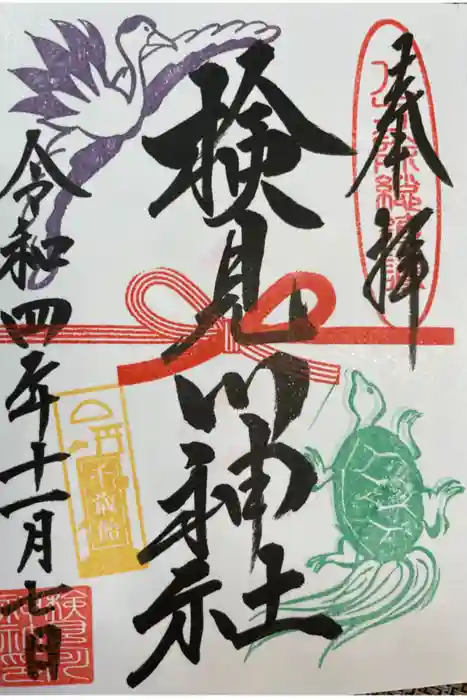 奉拝
検見川神社
令和四年十一月七日